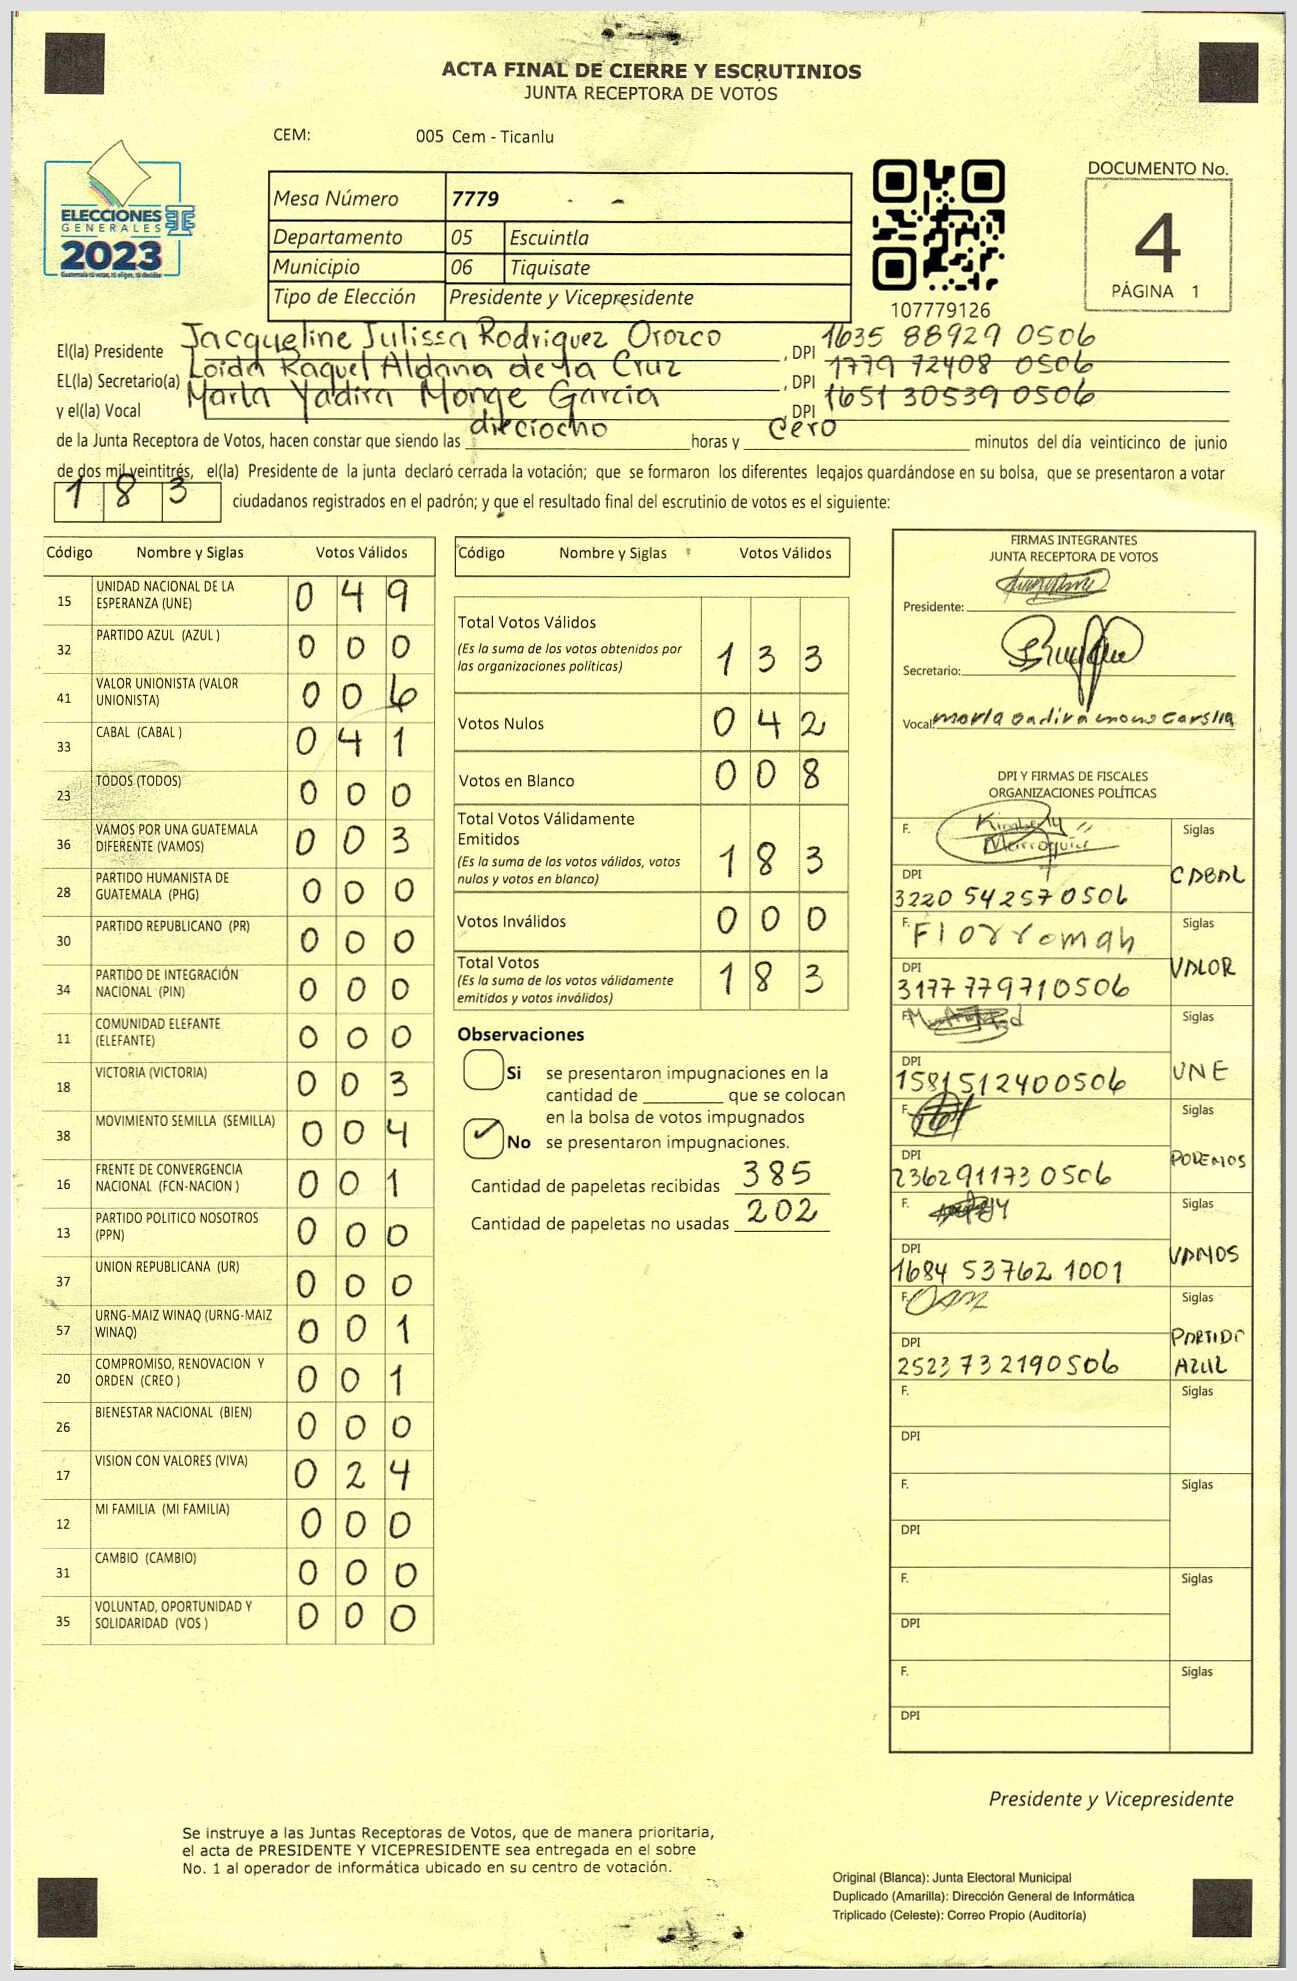 ACTA FINAL DE CIERRE Y ESCRUTINIOS
JUNTA RECEPTORA DE VOTOS
CEM: 005 Cem - Ticanlu
ELECCIONES
GENERALES
2023
Guatemala tú votas, tú eliges, tú decides
Mesa Número 7779
Departamento 05 Escuintla
Municipio 06 Tiquisate
Tipo de Elección Presidente y Vicepresidente
107779126
DOCUMENTO No.
4
PÁGINA 1
El(la) Presidente Jacqueline Julissa Rodriguez Orozco , DPI 1635 88929 0506
EL(la) Secretario(a) Loida Raquel Aldana de la Cruz , DPI 1779 72408 0506
y el(la) Vocal Marta Yadira Monge Garcia DPI 1651 30539 0506
de la Junta Receptora de Votos, hacen constar que siendo las dieciocho horas y cero minutos del día veinticinco de junio
de dos mil veintitrés, el(la) Presidente de la junta declaró cerrada la votación; que se formaron los diferentes legajos guardándose en su bolsa, que se presentaron a votar
183 ciudadanos registrados en el padrón; y que el resultado final del escrutinio de votos es el siguiente:
Código Nombre y Siglas Votos Válidos
15 UNIDAD NACIONAL DE LA ESPERANZA (UNE) 0 4 9
32 PARTIDO AZUL (AZUL ) 0 0 0
41 VALOR UNIONISTA (VALOR UNIONISTA) 0 0 6
33 CABAL (CABAL ) 0 4 1
23 TODOS (TODOS) 0 0 0
36 VAMOS POR UNA GUATEMALA DIFERENTE (VAMOS) 0 0 3
28 PARTIDO HUMANISTA DE GUATEMALA (PHG) 0 0 0
30 PARTIDO REPUBLICANO (PR) 0 0 0
34 PARTIDO DE INTEGRACIÓN NACIONAL (PIN) 0 0 0
11 COMUNIDAD ELEFANTE (ELEFANTE) 0 0 0
18 VICTORIA (VICTORIA) 0 0 3
38 MOVIMIENTO SEMILLA (SEMILLA) 0 0 4
16 FRENTE DE CONVERGENCIA NACIONAL (FCN-NACION ) 0 0 1
13 PARTIDO POLITICO NOSOTROS (PPN) 0 0 0
37 UNION REPUBLICANA (UR) 0 0 0
57 URNG-MAIZ WINAQ (URNG-MAIZ WINAQ) 0 0 1
20 COMPROMISO, RENOVACION Y ORDEN (CREO ) 0 0 1
26 BIENESTAR NACIONAL (BIEN) 0 0 0
17 VISION CON VALORES (VIVA) 0 2 4
12 MI FAMILIA (MI FAMILIA) 0 0 0
31 CAMBIO (CAMBIO) 0 0 0
35 VOLUNTAD, OPORTUNIDAD Y SOLIDARIDAD (VOS ) 0 0 0
Código Nombre y Siglas Votos Válidos
Total Votos Válidos
(Es la suma de los votos obtenidos por
las organizaciones políticas) 1 3 3
Votos Nulos 0 4 2
Votos en Blanco 0 0 8
Total Votos Válidamente
Emitidos
(Es la suma de los votos válidos, votos
nulos y votos en blanco) 1 8 3
Votos Inválidos 0 0 0
Total Votos
(Es la suma de los votos válidamente
emitidos y votos inválidos) 1 8 3
Observaciones
Si se presentaron impugnaciones en la
cantidad de ________ que se colocan
en la bolsa de votos impugnados
✓ No se presentaron impugnaciones.
Cantidad de papeletas recibidas 385
Cantidad de papeletas no usadas 202
FIRMAS INTEGRANTES
JUNTA RECEPTORA DE VOTOS
Presidente:
Secretario:
Vocal:
DPI Y FIRMAS DE FISCALES
ORGANIZACIONES POLÍTICAS
F. Kimberly Marroquín Siglas
DPI 3220 54257 0506 CABAL
F. Flor roman Siglas
DPI 3177 77971 0506 VALOR
F. Siglas
DPI 1581 51240 0506 UNE
F. Siglas
DPI 2362 91173 0506 PODEMOS
F. Siglas
DPI 1684 53762 1001 VAMOS
F. Siglas
DPI 2523 73219 0506 PARTIDO AZUL
F. Siglas
DPI
F. Siglas
DPI
F. Siglas
DPI
F. Siglas
DPI
Presidente y Vicepresidente
Se instruye a las Juntas Receptoras de Votos, que de manera prioritaria,
el acta de PRESIDENTE Y VICEPRESIDENTE sea entregada en el sobre
No. 1 al operador de informática ubicado en su centro de votación.
Original (Blanca): Junta Electoral Municipal
Duplicado (Amarilla): Dirección General de Informática
Triplicado (Celeste): Correo Propio (Auditoría)